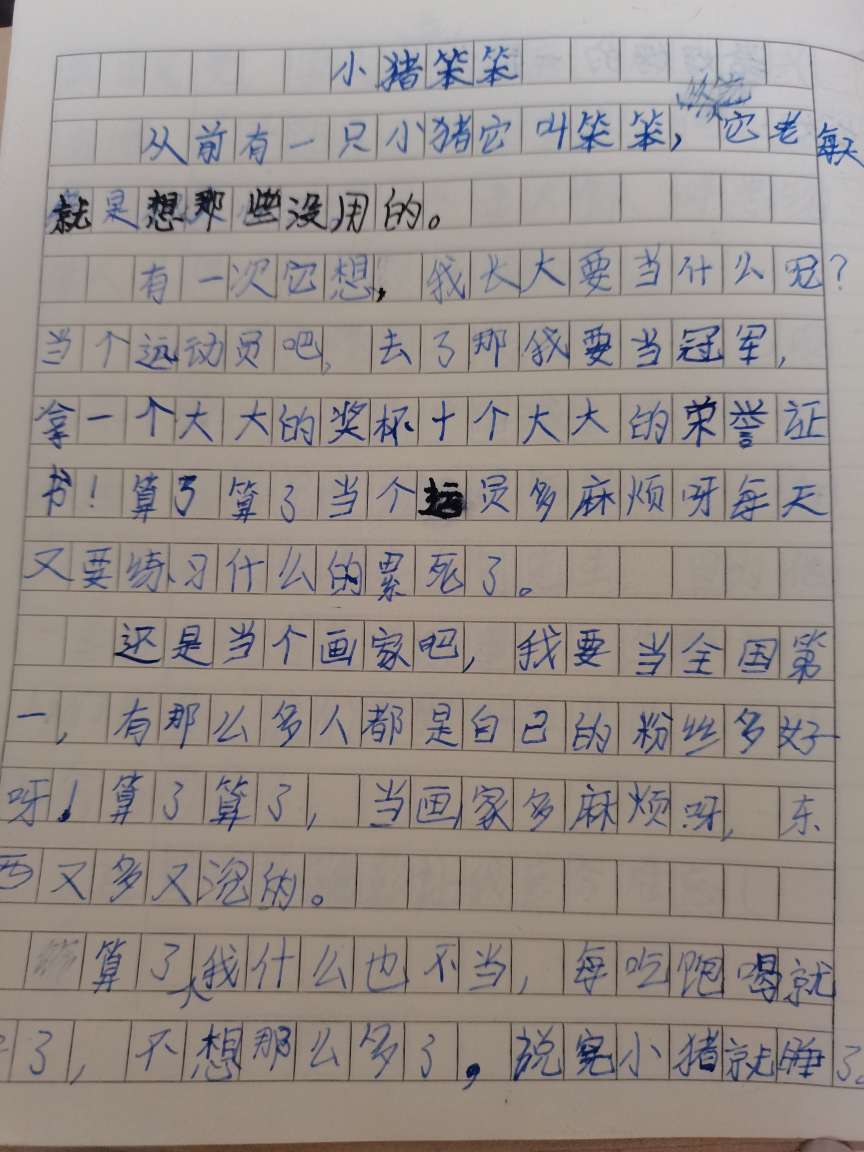 小猪笨笨
从前有一只小猪它叫笨笨，它老每天
就是想那些没用的。
有一次它想，我长大要当什么呢？
当个运动员吧，去了那我要当冠军，
拿一个大大的奖杯十个大大的荣誉证
书！算了算了当个运员多麻烦呀每天
又要练习什么的累死了。
还是当个画家吧，我要当全国第
一，有那么多人都是自己的粉丝多好
呀！算了算了，当画家多麻烦呀，东
西又多又混的。
算了，我什么也不当，每吃饱喝就
了，不想那么多了，说完小猪就睡了。